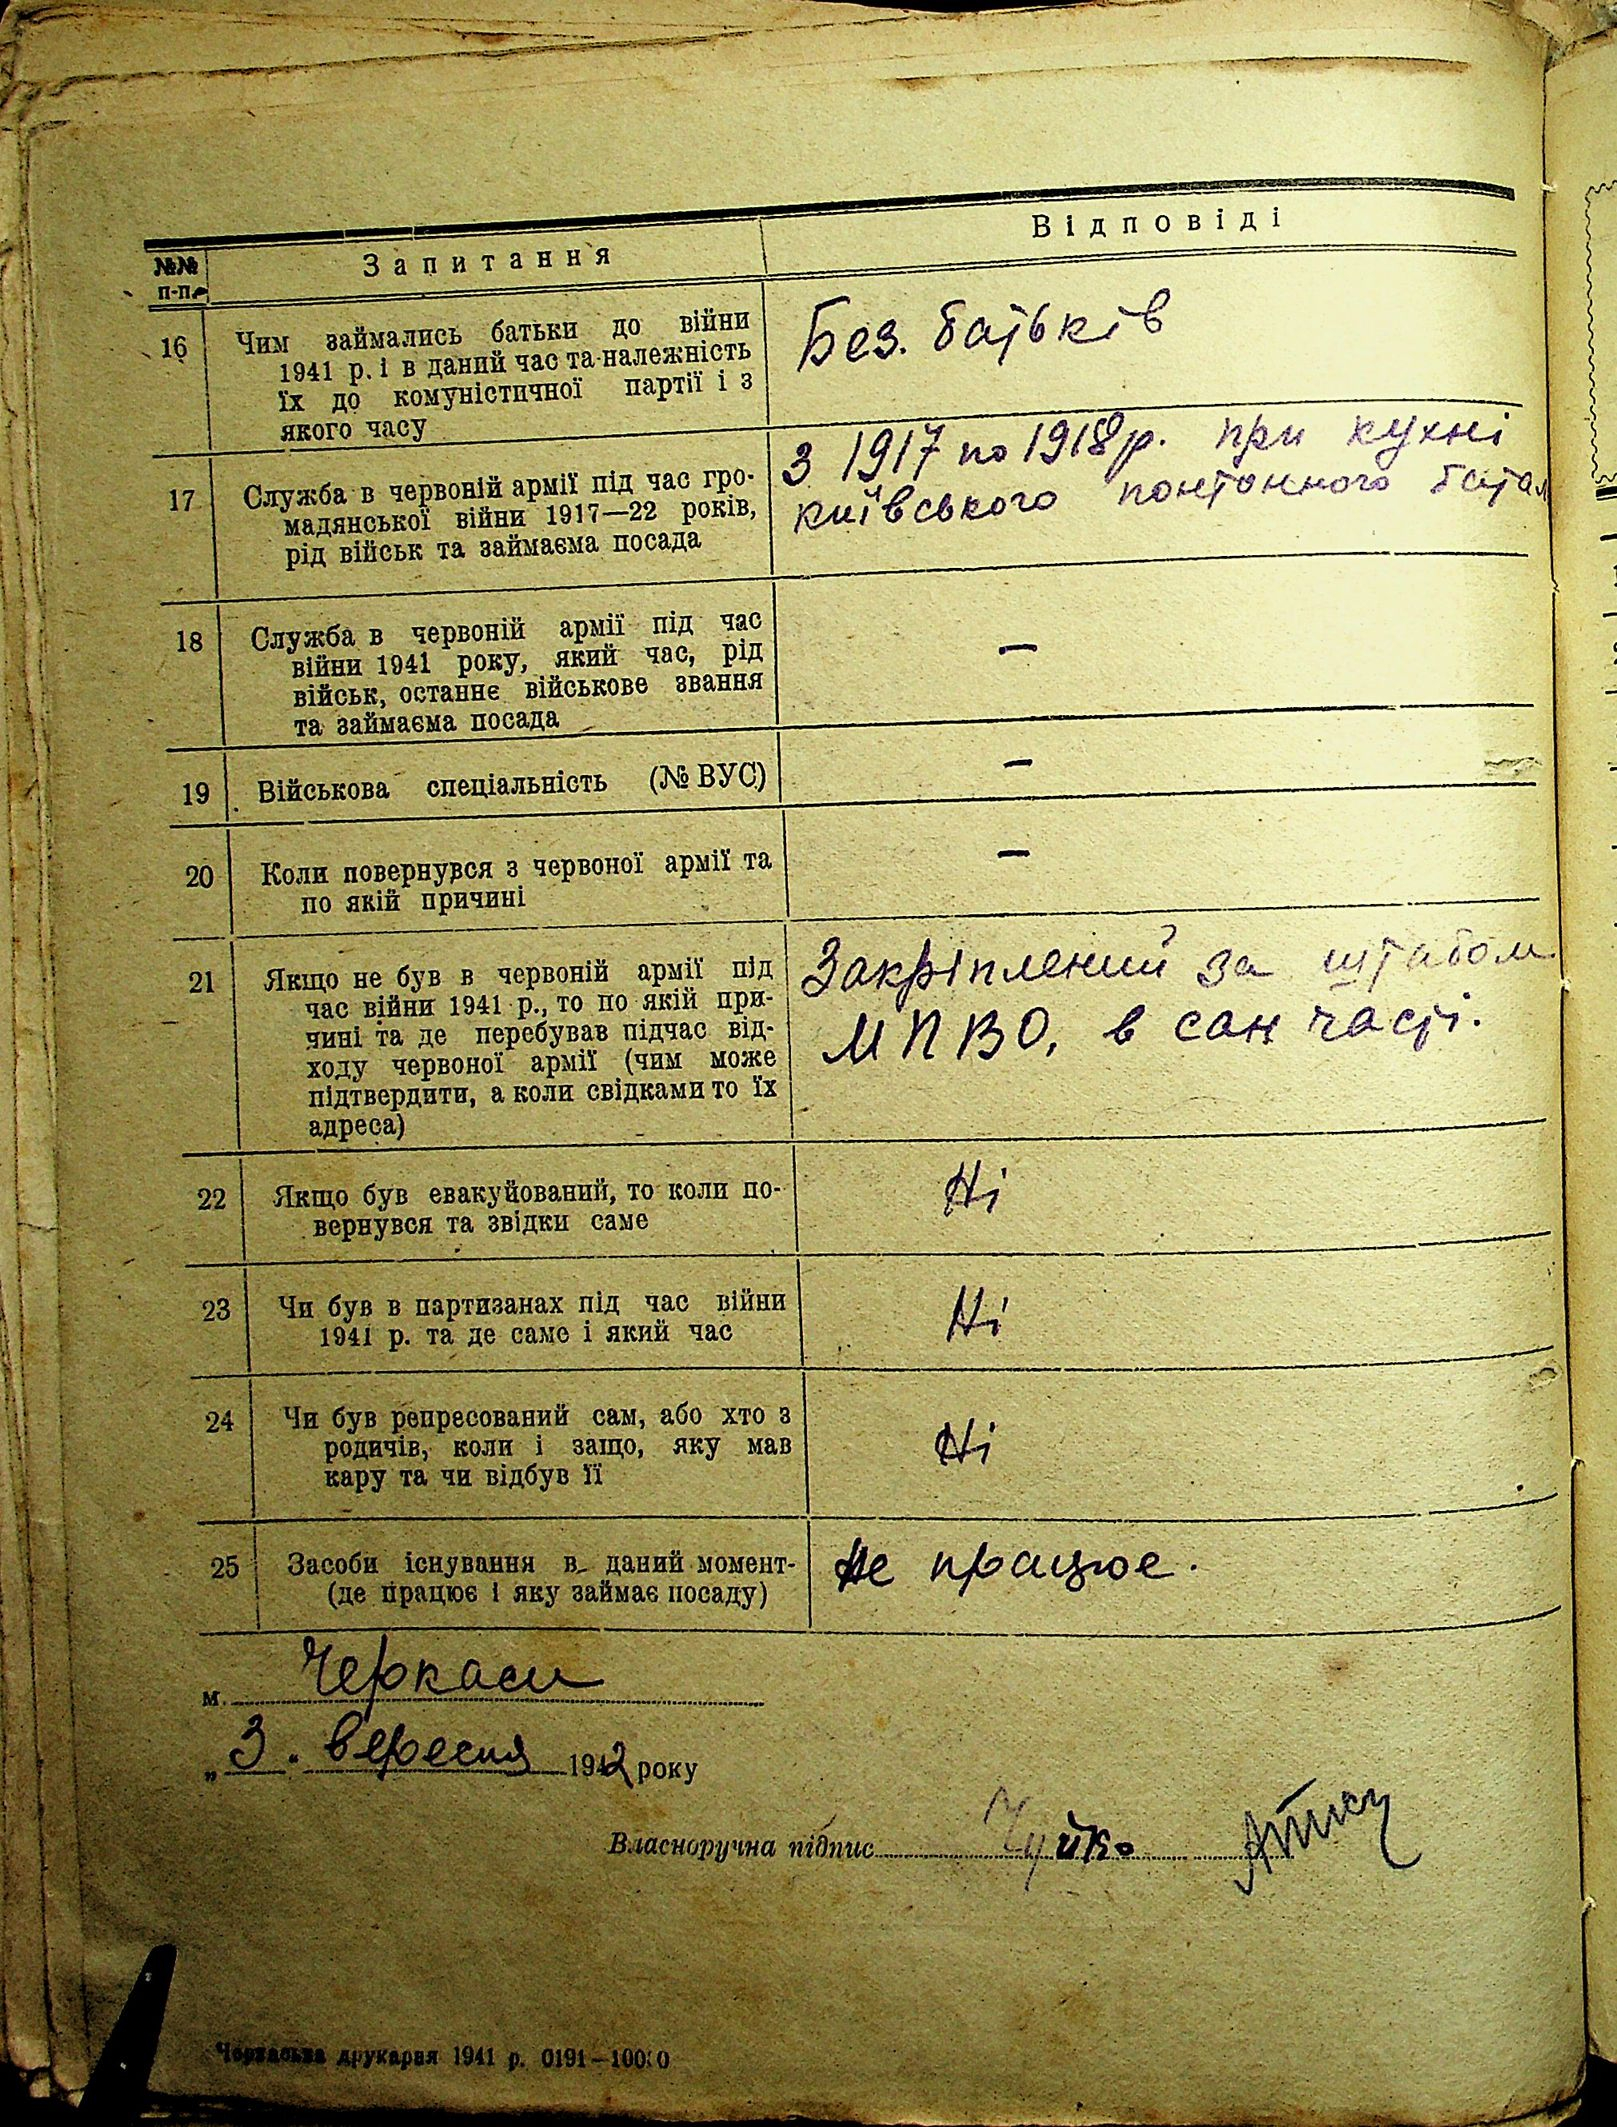 №№ п-п. Запитання Відповіді
16 Чим займались батьки до війни
1941 р. і в даний час та належність
їх до комуністичної партії і з
якого часу
Без. батьків
17 Служба в червоній армії під час гро-
мадянської війни 1917—22 років,
рід військ та займаєма посада
З 1917 по 1918 р. при кухні
київського понтонного батал
18 Служба в червоній армії під час
війни 1941 року, який час, рід
військ, останнє військове звання
та займаєма посада
—
19 Військова спеціальність (№ ВУС)
—
20 Коли повернувся з червоної армії та
по якій причині
—
21 Якщо не був в червоній армії під
час війни 1941 р., то по якій при-
чині та де перебував підчас від-
ходу червоної армії (чим може
підтвердити, а коли свідками то їх
адреса)
Закріплений за штабом
МПВО, в сан часті.
22 Якщо був евакуйований, то коли по-
вернувся та звідки саме
Ні
23 Чи був в партизанах під час війни
1941 р. та де саме і який час
Ні
24 Чи був репресований сам, або хто з
родичів, коли і защо, яку мав
кару та чи відбув її
Ні
25 Засоби існування в даний момент-
(де працює і яку займає посаду)
Не працює.
м. Черкаси
„3“ вересня 1942 року
Власноручна підпис Чуйко
Черкаська друкарня 1941 р. 0191—10000